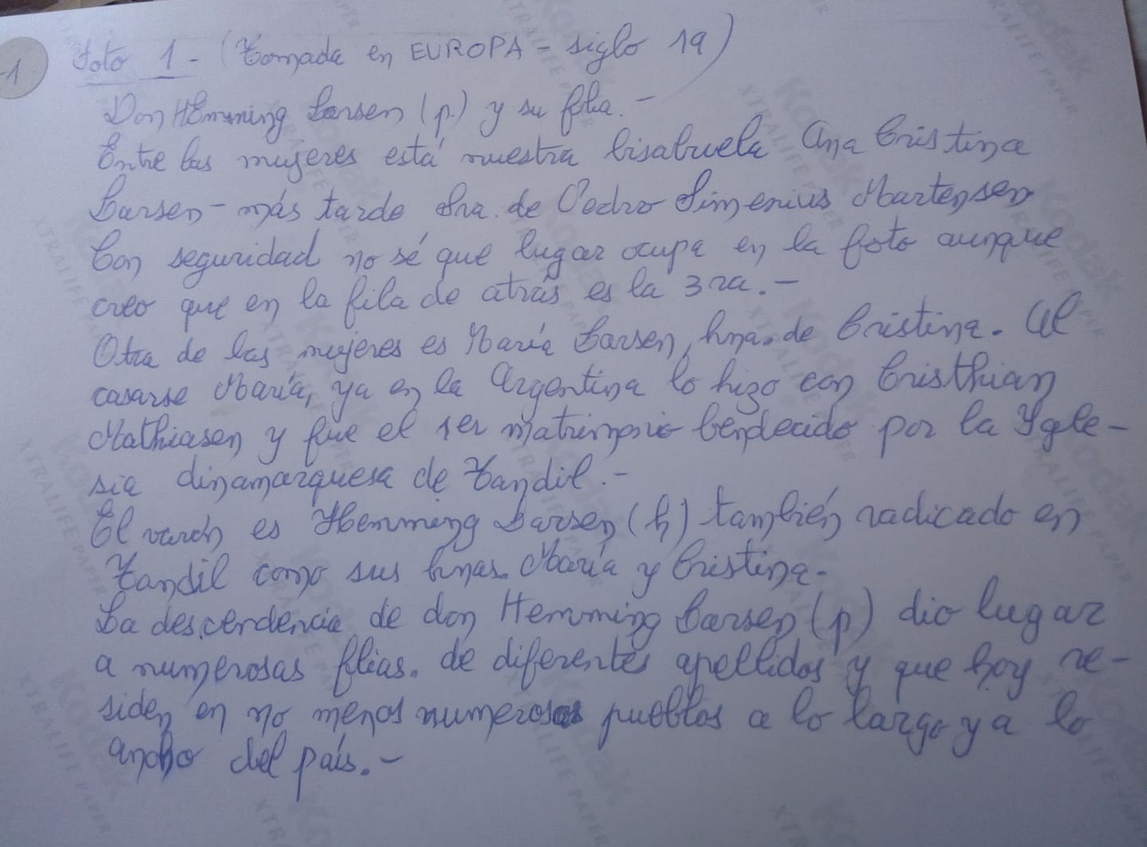 -1
Foto 1 - (Tomada en EUROPA - siglo 19)
Don Hemming Larsen (p.) y su flia. -
Entre las mujeres está nuestra bisabuela Ana Cristina
Larsen - más tarde Sra. de Pedro Simenius Martensen
Con seguridad no sé que lugar ocupa en la foto aunque
creo que en la fila de atrás es la 3ra. -
Otra de las mujeres es María Larsen, hna. de Cristina. Al
casarse María, ya en la Argentina lo hizo con Cristhian
Mathiasen y fue el 1er matrimonio bendecido por la Igle-
sia dinamarquesa de Tandil. -
El varón es Hemming Larsen (h) también radicado en
Tandil como sus hnas. María y Cristina. -
La descendencia de don Hemming Larsen (p) dio lugar
a numerosas flias. de diferentes apellidos y que hoy re-
siden en no menos numerosos pueblos a lo largo y a lo
ancho del país. -
Kodak
XTRALIFE PAPER